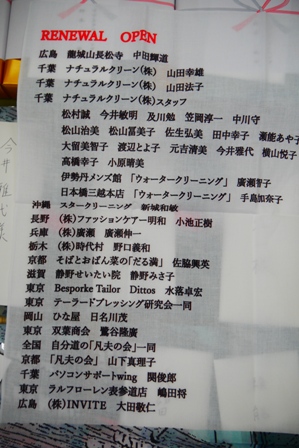 RENEWAL OPEN
広島 龍城山長松寺 中田輝道
千葉 ナチュラルクリーン(株) 山田幸雄
千葉 ナチュラルクリーン(株) 山田法子
千葉 ナチュラルクリーン(株)スタッフ
松村誠 今井敏明 及川勉 笠岡淳一 中川守
松山治美 松山冨美子 佐生弘美 田中幸子 瀬能あや子
大留美智子 渡辺とよ子 元吉清美 今井雅代 横山悦子
高橋幸子 小原晴美
伊勢丹メンズ館 「ウォータークリーニング」 廣瀬智子
日本橋三越本店 「ウォータークリーニング」 手島加奈子
沖縄 スタークリーニング 新城和敏
長野 (株)ファッションケアー明和 小池正樹
兵庫 (株)廣瀬 廣瀬伸一
栃木 (株)時代村 野口義和
京都 そばとおばん菜の「だる満」 佐脇興英
滋賀 静野せいたい院 静野みさ子
東京 Besporke Tailor Dittos 水落卓宏
東京 テーラードプレッシング研究会一同
岡山 ひな屋 日名川茂
東京 双葉商会 鷲谷隆廣
全国 自分道の「凡夫の会」一同
京都 「凡夫の会」 山下真理子
千葉 パソコンサポートwing 関俊郎
東京 ラルフローレン表参道店 嶋田将
広島 (株)INVITE 大田敬仁
今井雅